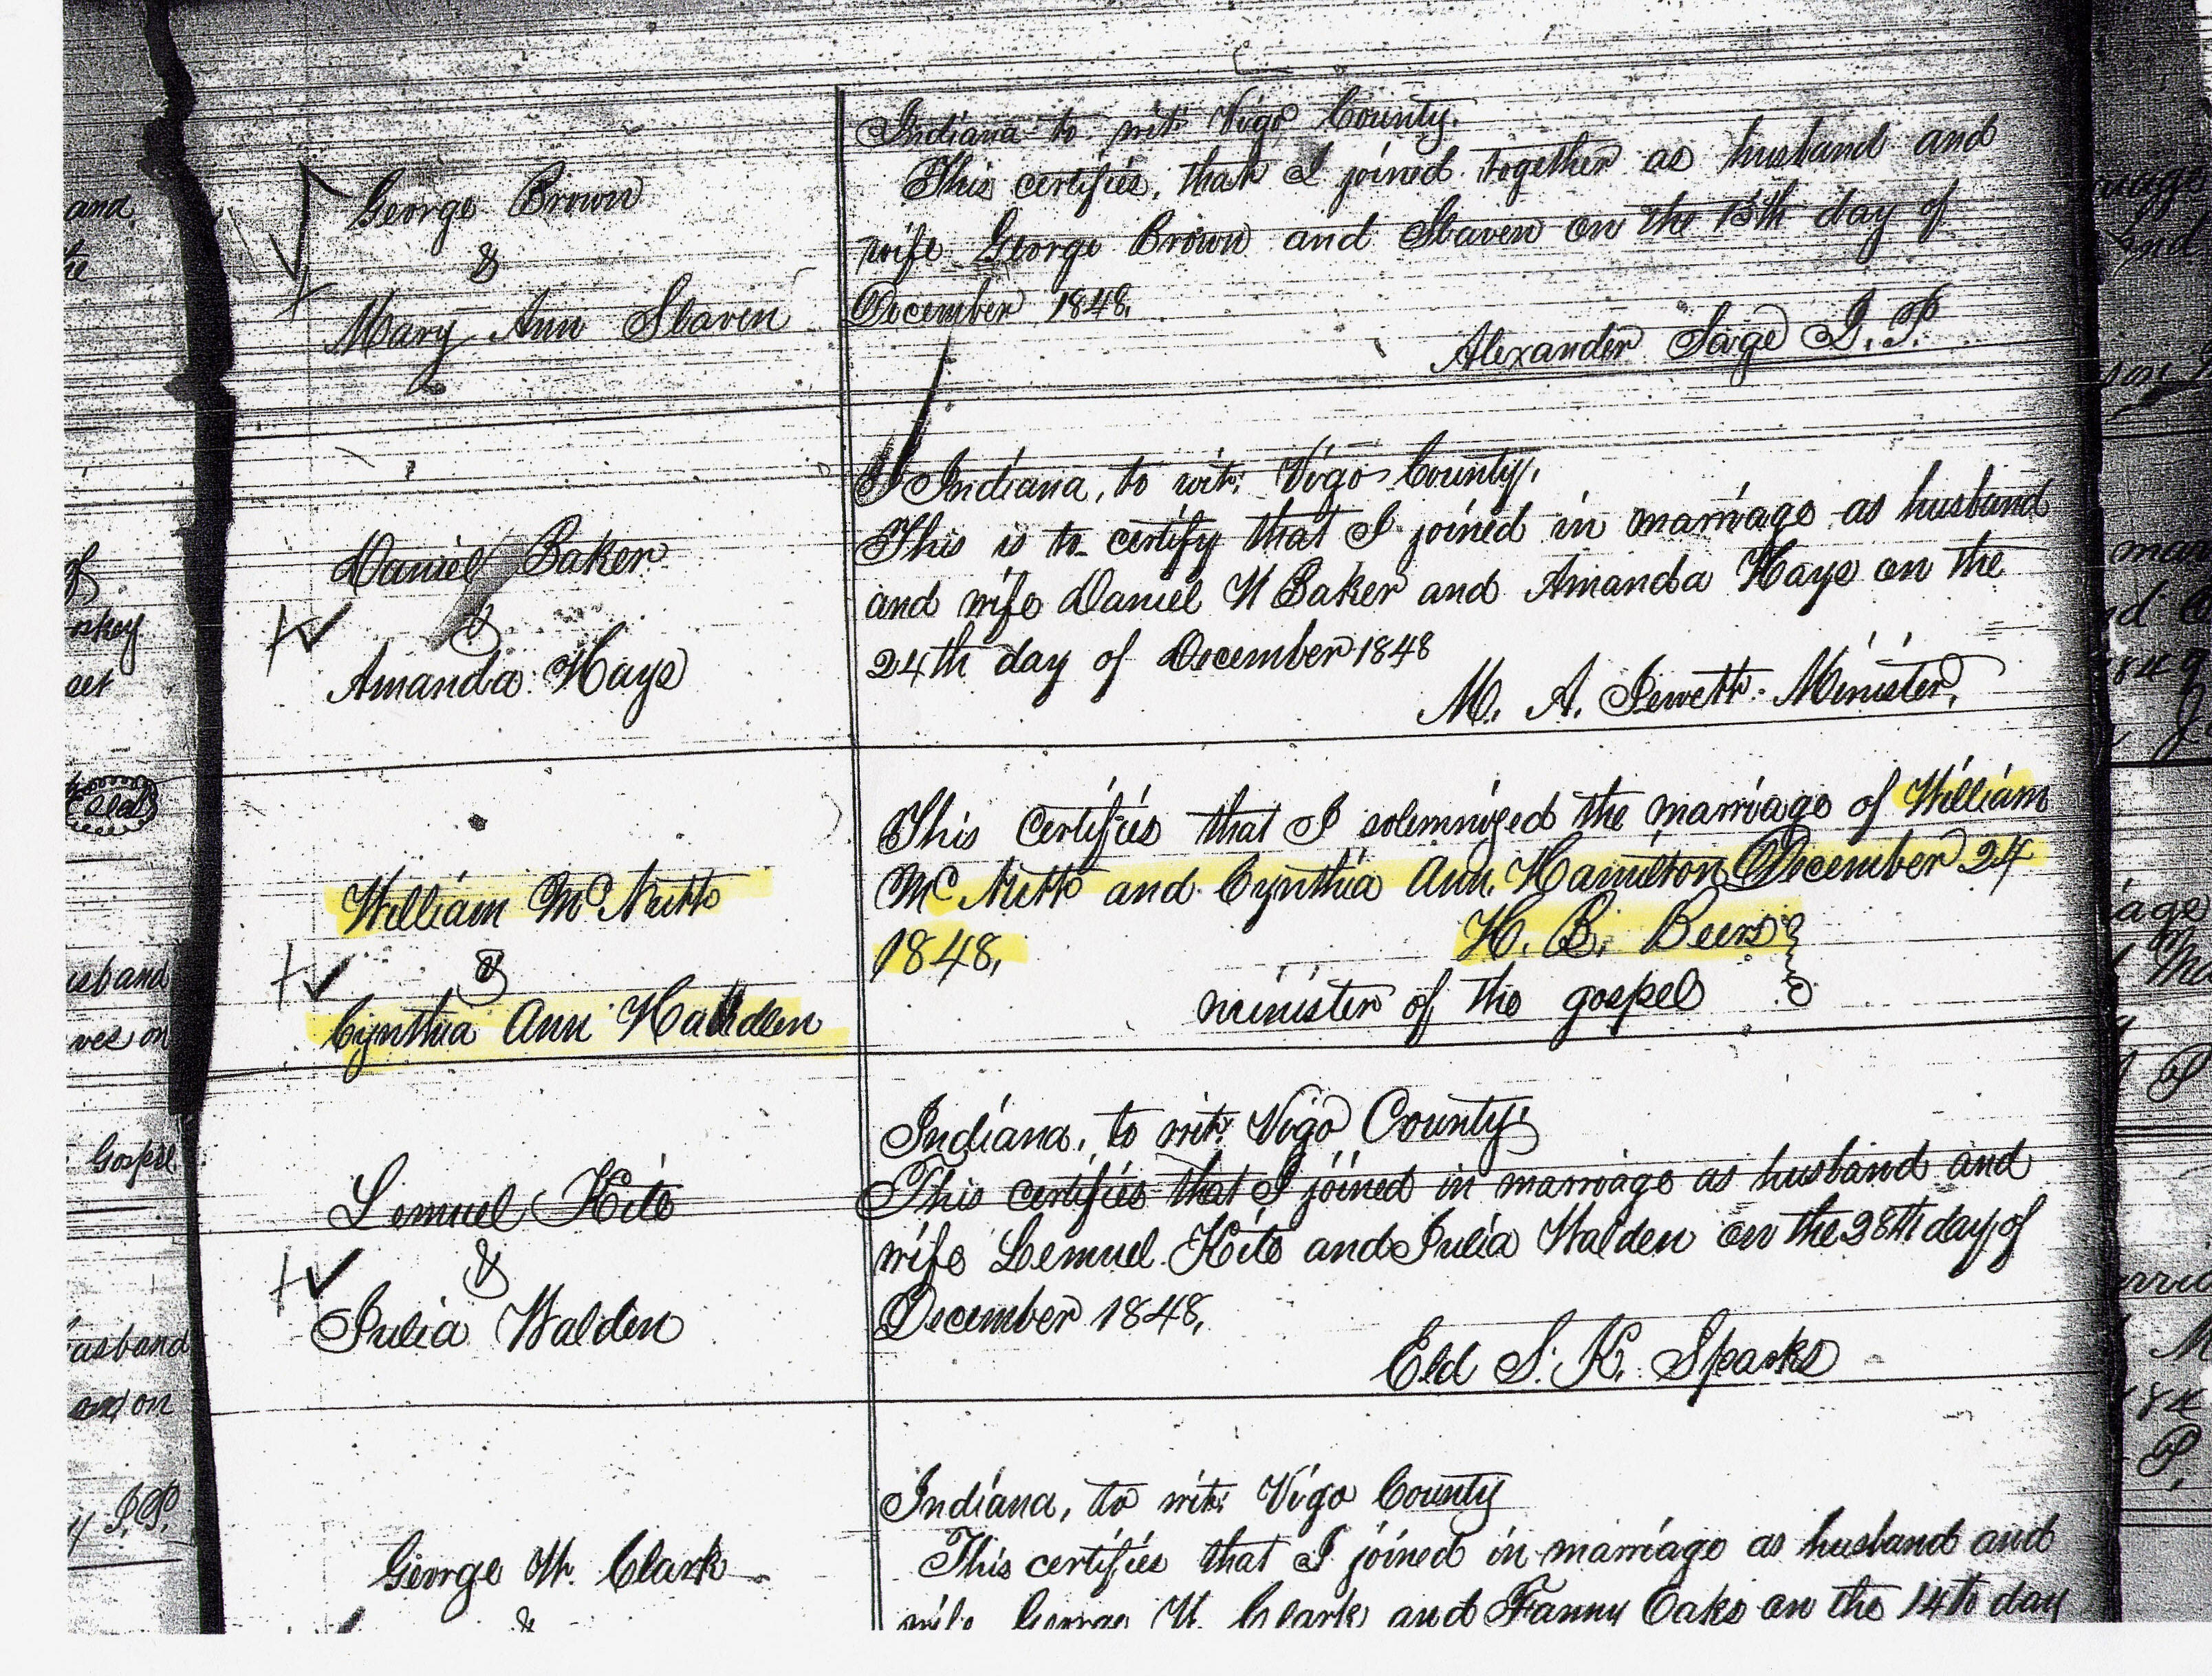 George Brown
&
Mary Ann Slaven
Indiana to wit: Vigo County.
This certifies, that I joined together as husband and
wife George Brown and Slaven on the 13th day of
December 1848.
Alexander Sage J. P.
Daniel Baker
&
Amanda Haye
Indiana, to wit: Vigo County,
This is to certify that I joined in marriage as husband
and wife Daniel W Baker and Amanda Haye on the
24th day of December 1848
M. A. Jewett Minister,
William McNutt
&
Cynthia Ann
This certifies that I solemnized the marriage of William
McNutt and Cynthia Ann Hamilton December 24
1848,
H. B. Beers
minister of the gospel
Lemuel Kite
&
Julia Walden
Indiana, to wit: Vigo County
This certifies that I joined in marriage as husband and
wife Lemuel Kite and Julia Walden on the 28th day of
December 1848,
Eld S. K. Sparks
George W. Clark
&
Indiana, to wit: Vigo County
This certifies that I joined in marriage as husband and
wife George W. Clark and Fanny Oaks on the 14th day
and
of
Seal
usband
on
Gospel
husband
and on
J.P.